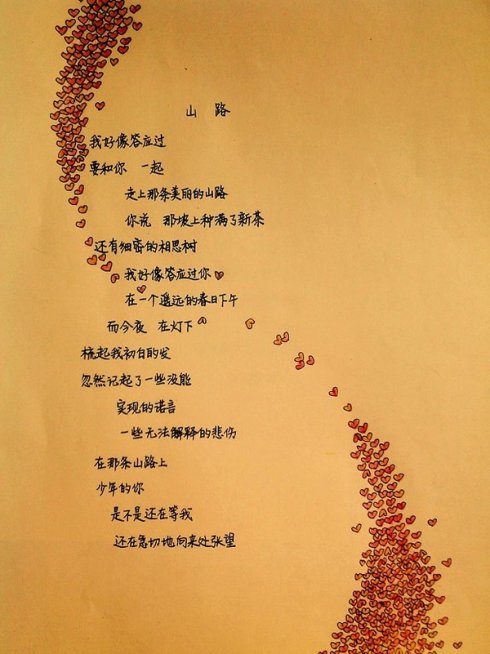 山 路
我好像答应过
要和你 一起
走上那条美丽的山路
你说 那坡上种满了新茶
还有细密的相思树
我好像答应过你
在一个遥远的春日下午
而今夜 在灯下
梳起我初白的发
忽然记起了一些没能
实现的诺言
一些无法解释的悲伤
在那条山路上
少年的你
是不是还在等我
还在急切地向来处张望